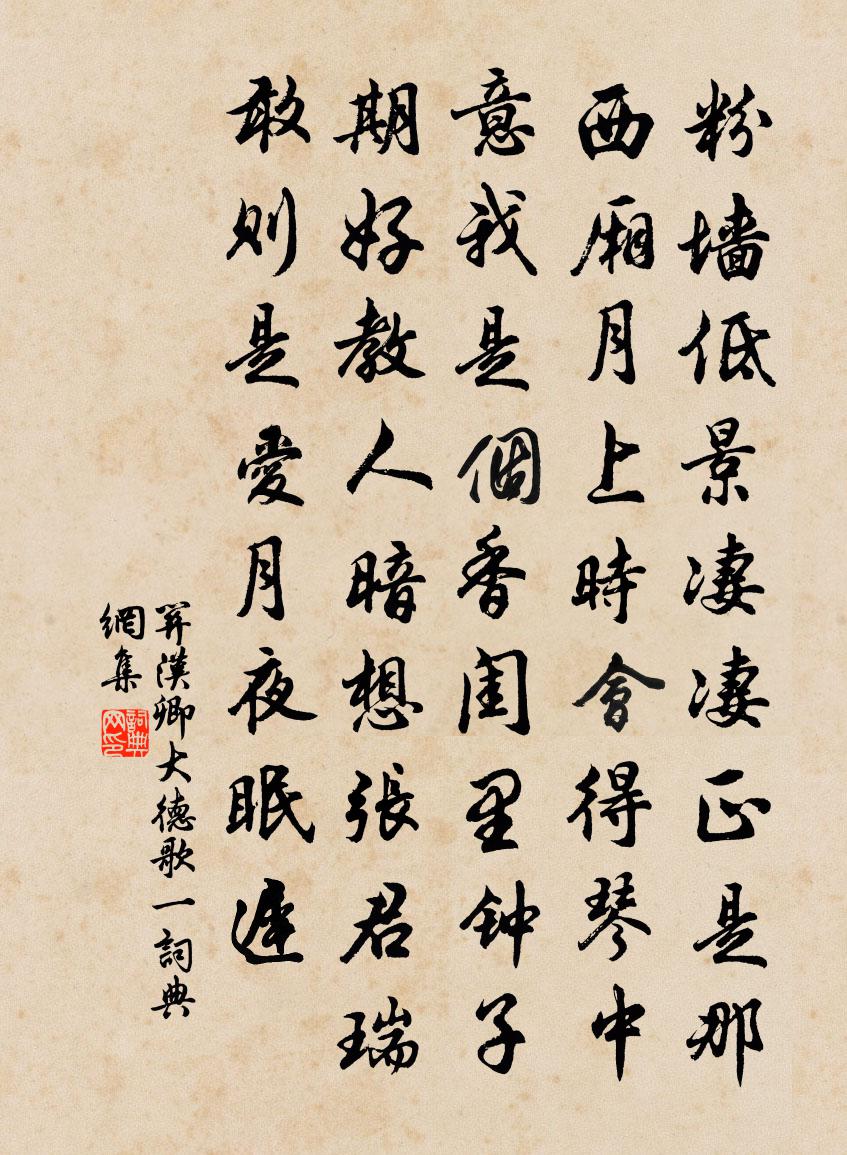 粉墙低景凄凄正是那
西厢月上時會得琴中
意我是個香闺里钟子
期好教人暗想張君瑞
敢则是愛月夜眠遲
关漢卿大德歌一詞典
網集
詞典网印